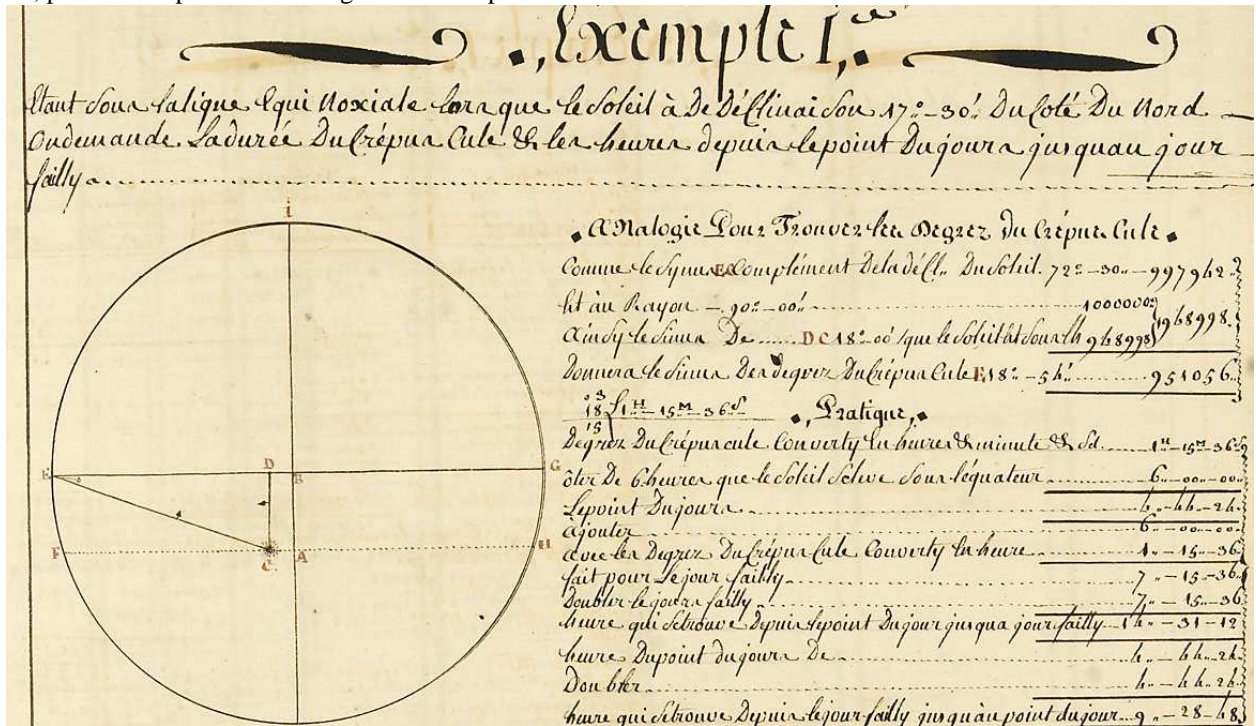 Exemple 1er
Etant sous la ligne Equi Noxiale lors que le Soleil à De Déclinaison 17°-30' Du Coté Du Nord
On demande La durée Du Crépus Cule & les heures depuis le point Du jours jusquau jour
failly
Analogie Pour Trouver les Degrez Du Crépus Cule
Comme le Synus EC Complément De la décl.. Du Soleil. 72°-30..-997942
Et àu Rayon - 90°-00' 1000000
Ainsy le Sinus De DC 18°-00' / que le Soleil Et Sous lh 948998 } 1948998.
Donnera le Sinus Des degrez Du Crépus Cule E 18°-54' 951056..
03
18 ∫ 1H-15M-36S Pratique
15
Degrez Du Crépuscule Converty En heures & minute & Sd. 1H-15M-36S
ôter De 6 heures que le Soleil Se leve Sous l'équateur 6..-00..-00..
Le point Du jours 4..-44-24.
àjouter 6..-00..-00
avec les Degrez Du Crépus Cule Converty En heure 1..-15..-36
fait pour Le jour failly 7..-15..-36
Doubler le jours failly 7..-15..-36
heure qui Se trouve Depuis le point Du jour jusqua jour failly 14..-31-12
heure Du point du jours De 4..-44..24.
Doubler 4..-44..24.
heure qui Se trouve Depuis le jour failly jusqu'àu point du jour 9..-28-48
I
E
D
B
G
F
C
A
H